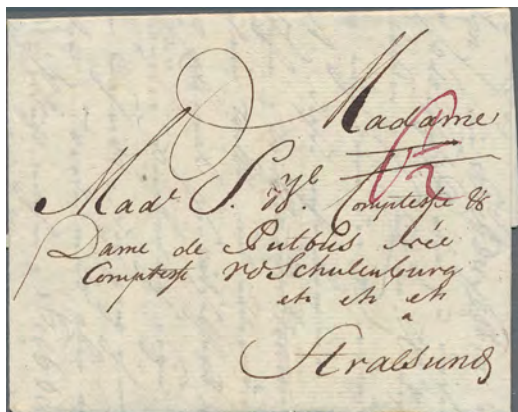 Madame
Mad. Comptesse &
Dame de Putbus née
Comptesse v d Schulenburg
etc etc etc
a
Stralsund